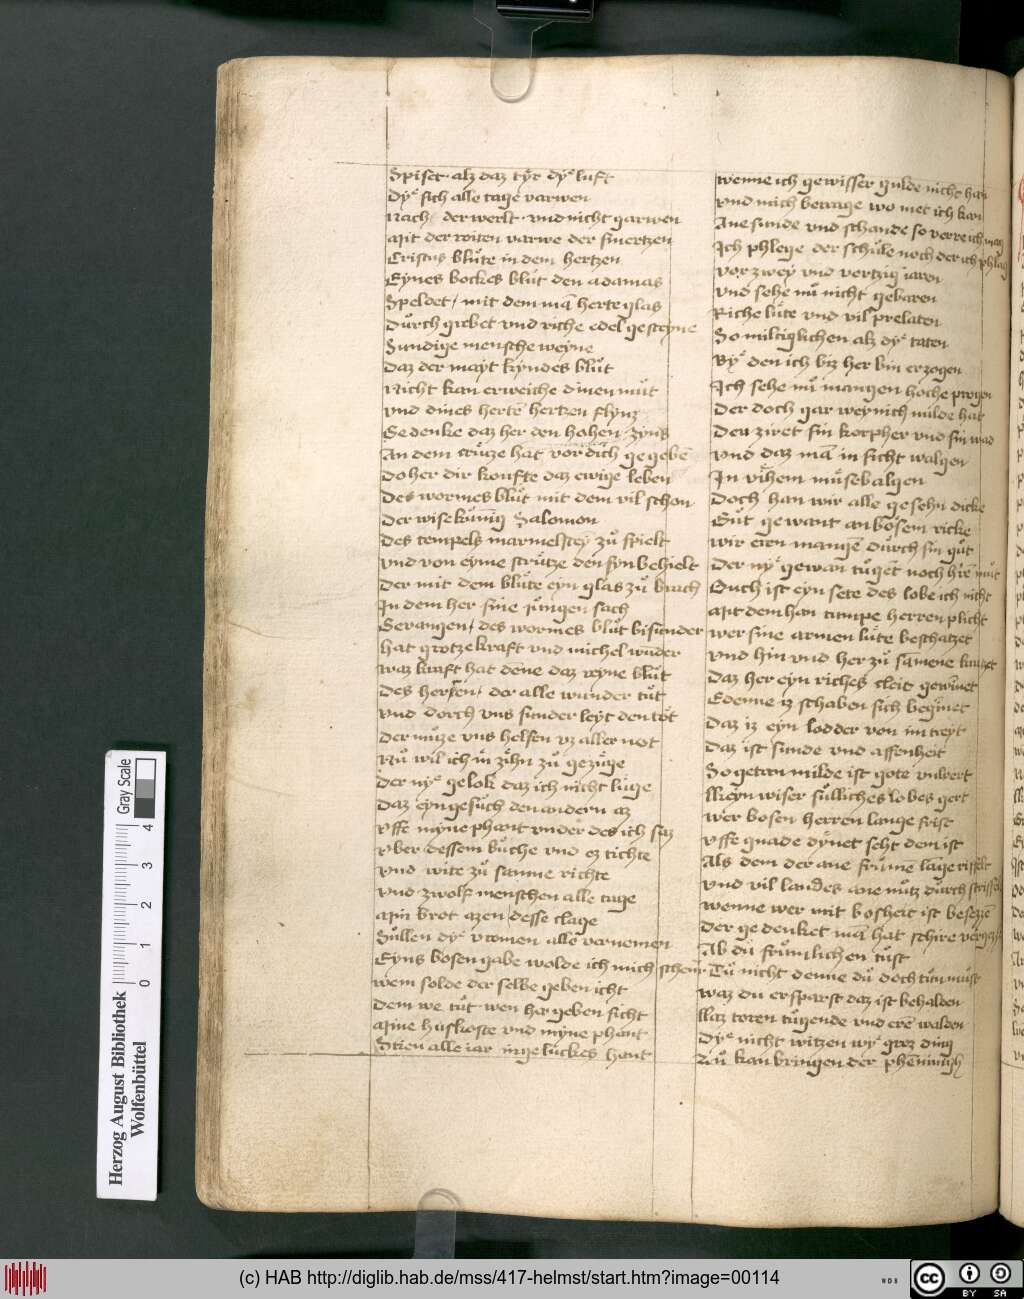 Spiset alz daz tyr dye luft
Dye sich alle tage varwen
Nach der werlt vnd nicht garwen
Mit der roten varwe der smertzen
Cristus blute in dem hertzen
Eynes bockes blut den adamas
Speldet mit dem mā herte glas
Durch grebet vnd riche edel gesteyne
Sundige mensche weyne
Daz der mayt kyndes blut
Nicht kan erweiche dinen mut
vnd dines hertē hertzen flynz
Gedenke daz her den hohen zyns
An dem cruze hat vor dich gegebē
Do her dir koufte daz ewige leben
Des wormes blut mit dem vil schon
Der wise kunnig Salomon
Des tempels marmelstey zu spielt
vnd von eyme strutze den syn behielt
Der mit dem blute eyn glas zu brach
In dem her sine jungen sach
Gevangen des wormes blut bisunder
hat grotze kraft vnd michel wūder
waz kraft hat dene daz reyne blut
Des herren der alle wunder tut
vnd dorch vns sunder leyt den tot
Der muze vns helfen vz aller not
Nu wil ich in zihn zu gezuge
Der nye gelok daz ich nicht luge
Daz eyn gesuch den andern az
vffe myne phant vnder des ich saz
vber dessem buche vnd ez tichte
vnd wite zu samne richte
vnd zwolf menschen alle tage
Min brot azen desse clage
Sullen dye vromen alle vernemen
Eyns bosen gabe wolde ich mich schem
wem solde der selbe geben icht
Dem we tut wen her geben sicht
Mine huskoste vnd myne phant
Stien alle iar in geluckes hant
wenne ich gewisser gulde nicht han
vnd mich betrage wo met ich kan
Ane sunde vnd schande so verre ich mag
Ich phlege der schule noch der ich phlag
vor zwey vnd vertzig iaren
vnd sehe nu nicht gebaren
Riche lute vnd vil prelaten
So milticlichen alz dye taten
By den ich biz her bin erzogen
Ich sehe nu mangen hoche
Der doch gar weynich milde hat
Den ziret sin korpher vnd sin wad
vnd daz mā in sicht walgen
In vihem musebalgen
Doch han wir alle gesehn dicke
Gut gewant an bosem ricke
wir eren mangē durch sin gut
Der nye gewan tugēt noch hirē mut
Ouch ist eyn sete des lobe ich nicht
Mit dem han tumpe herren plicht
wer sine armen lute beschatzet
vnd hin vnd her zu samene kratzet
Daz her eyn riches cleit gewinet
Edenne iz schaben sich beginet
Daz iz eyn lodder von im treyt
Daz ist sunde vnd affenheit
So getan milde ist gote vnwert
Keyn wiser sulliches lobes gert
wer bosen herren lange frist
vffe gnade dynet seht dem ist
Als dem der ane frumē lāge
vnd vil landes ane nutz durch
wenne wer mit bosheit ist besezzē
Der gedenket mā hat schire
Ab du frumlichen tust
Tu nicht denne du doch tun must
waz du ersparst daz ist behalden
Laz toren tugende vnd erē walden
Dye nicht witzen wye groz ding
Nu kan bringen der phenning
Herzog August Bibliothek
Wolfenbüttel
Gray Scale
0 1 2 3 4
(c) HAB http://diglib.hab.de/mss/417-helmst/start.htm?image=00114
WDB
cc BY SA